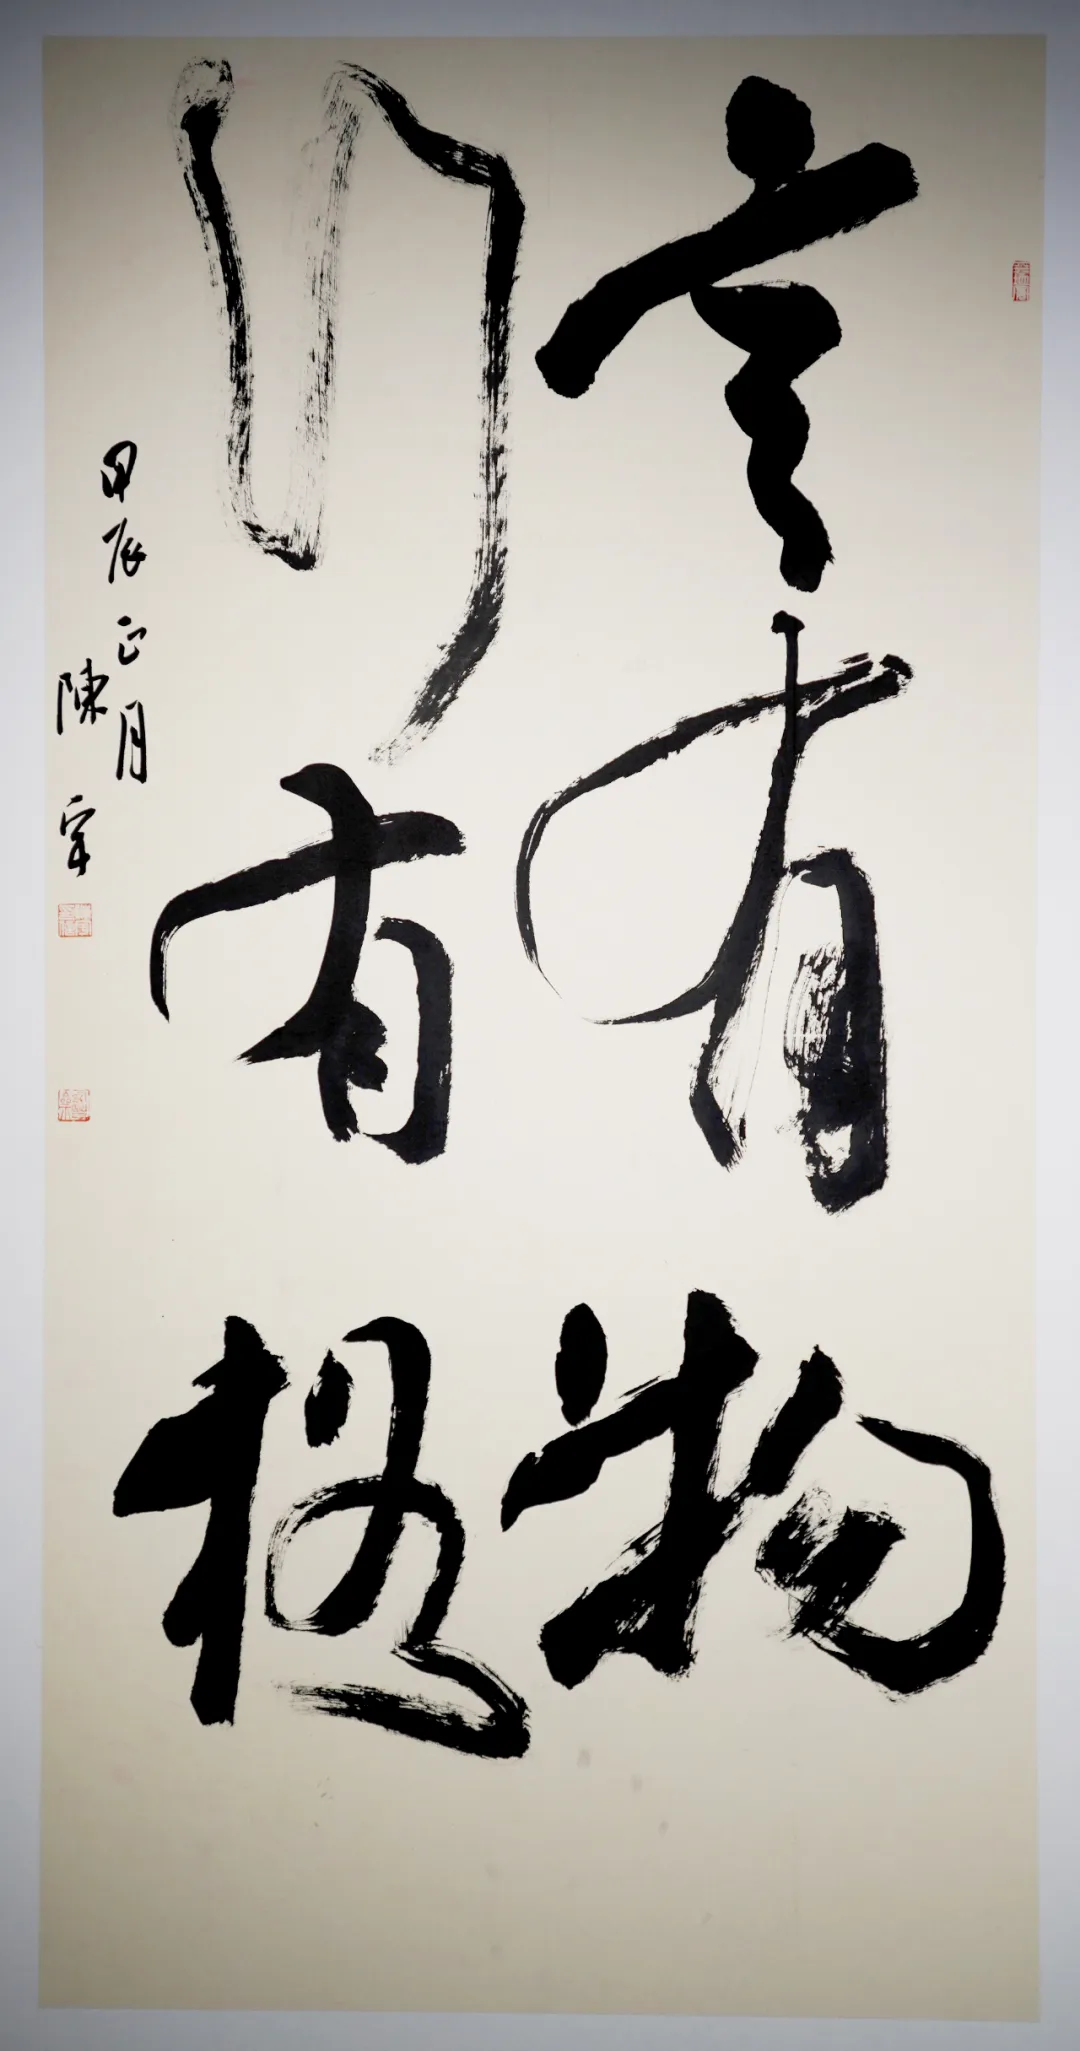 言有物
行有格
甲辰正月
陳